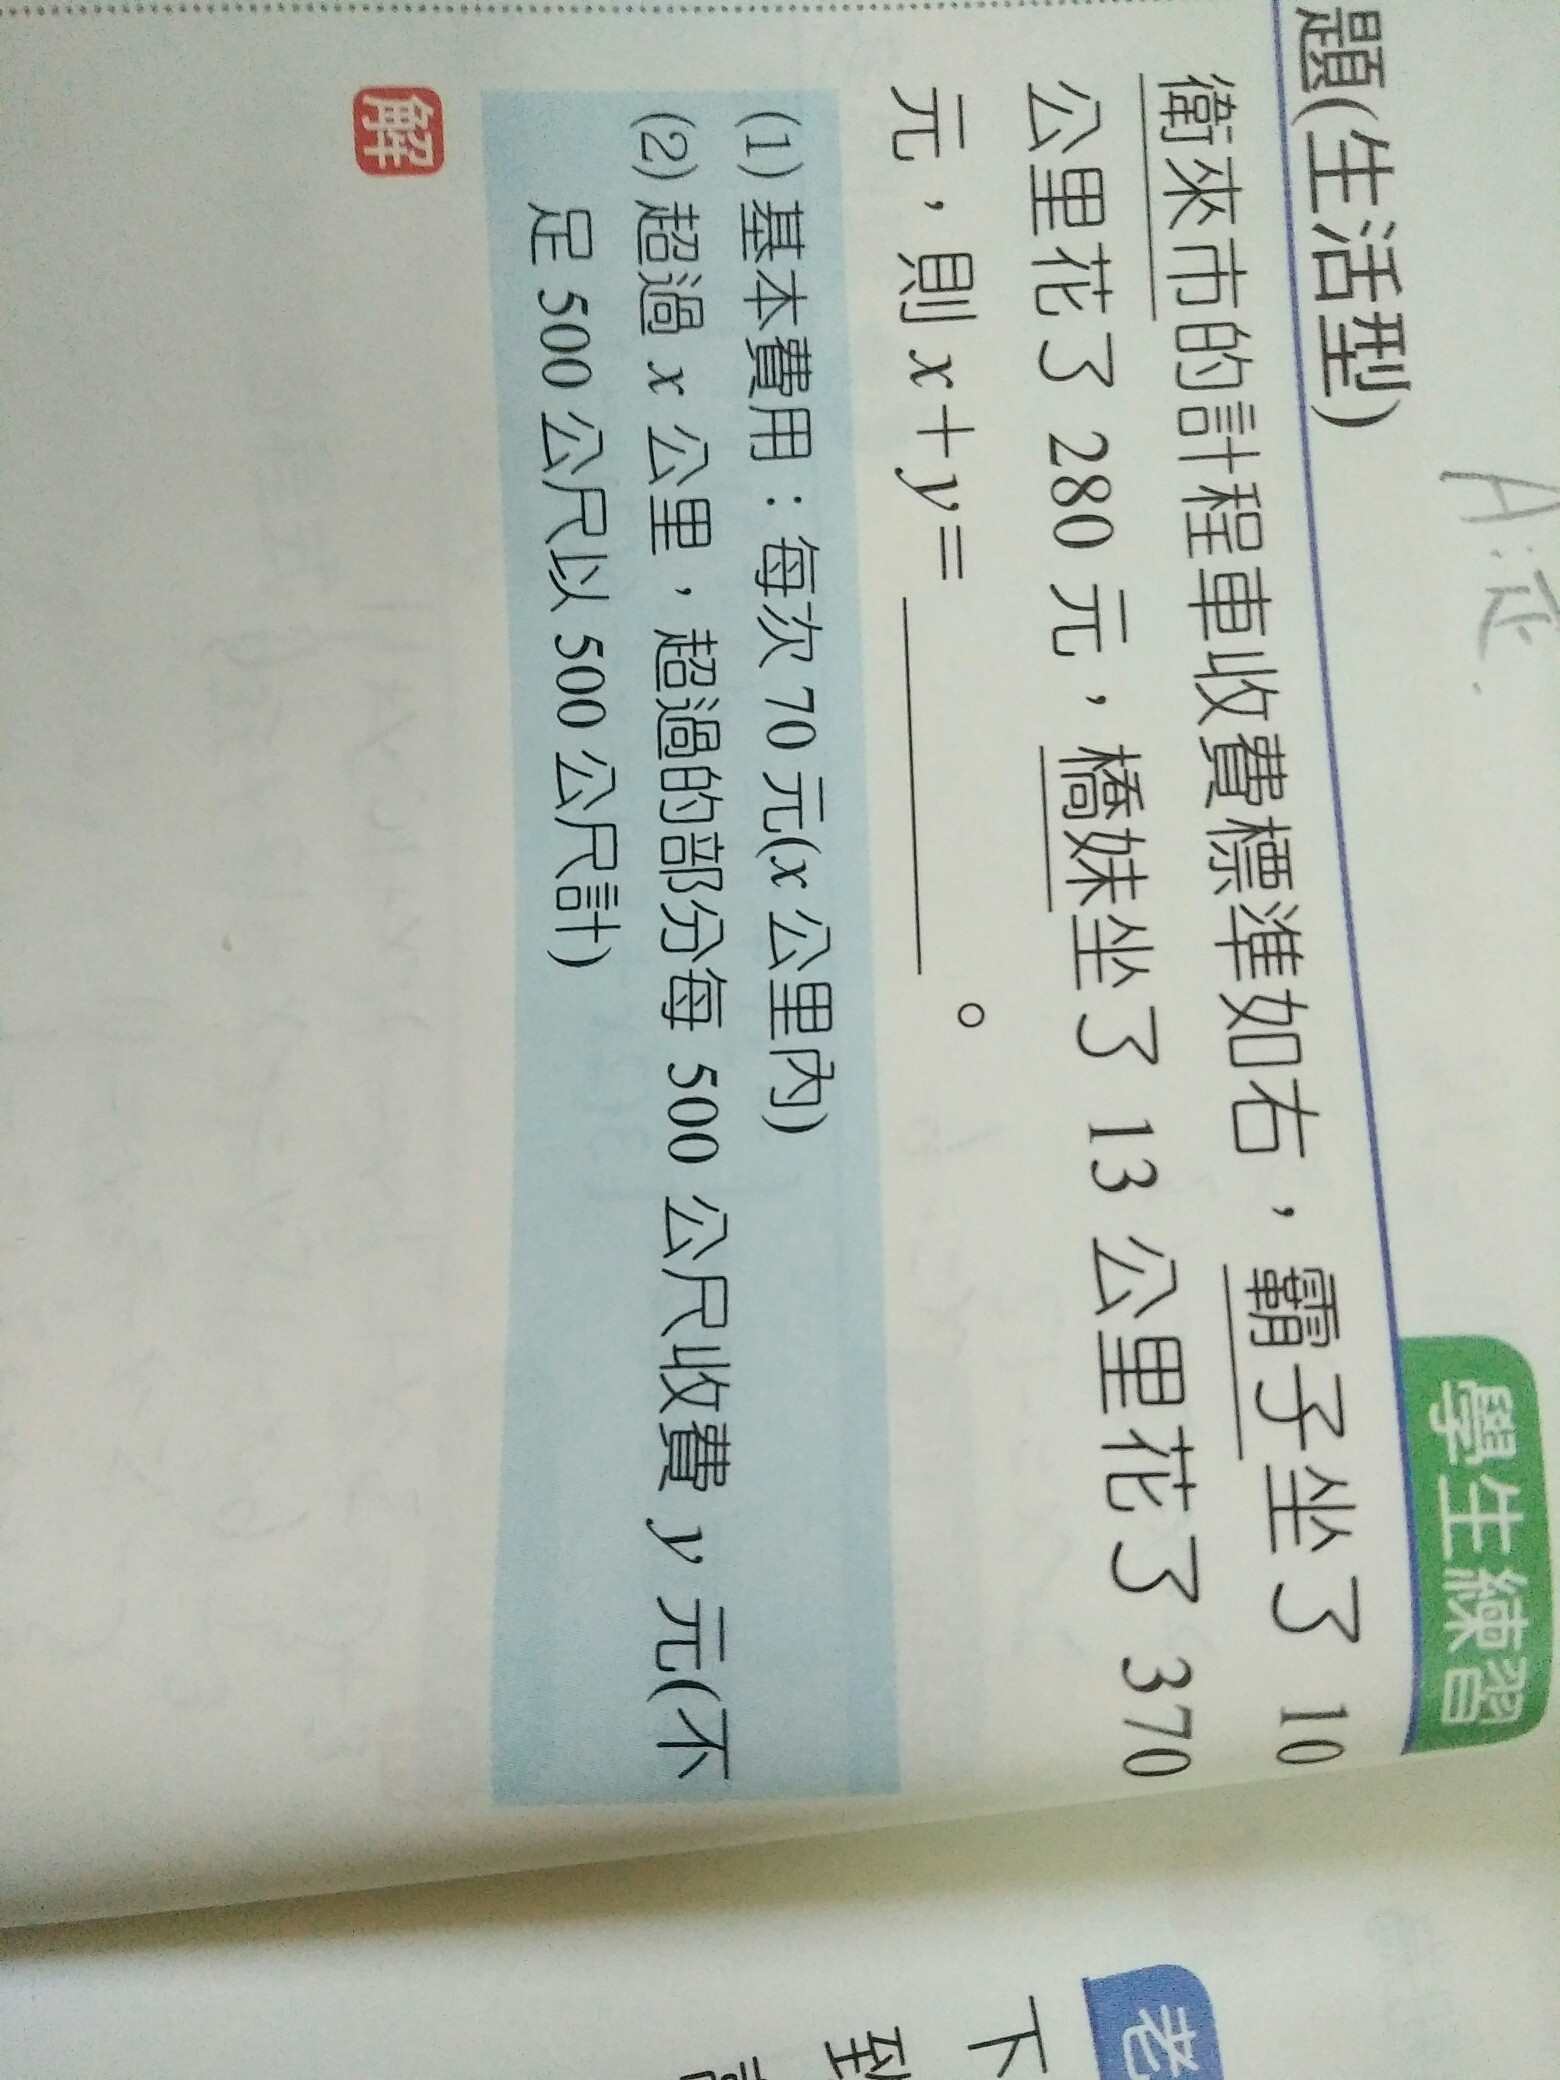 題(生活型)
學生練習
A:在
衛來市的計程車收費標準如右，霸子坐了 10
公里花了 280 元，橋妹坐了 13 公里花了 370
元，則 x＋y＝＿＿＿＿。
(1) 基本費用：每次 70 元(x 公里內)
(2) 超過 x 公里，超過的部分每 500 公尺收費 y 元(不
足 500 公尺以 500 公尺計)
解
老
下
到